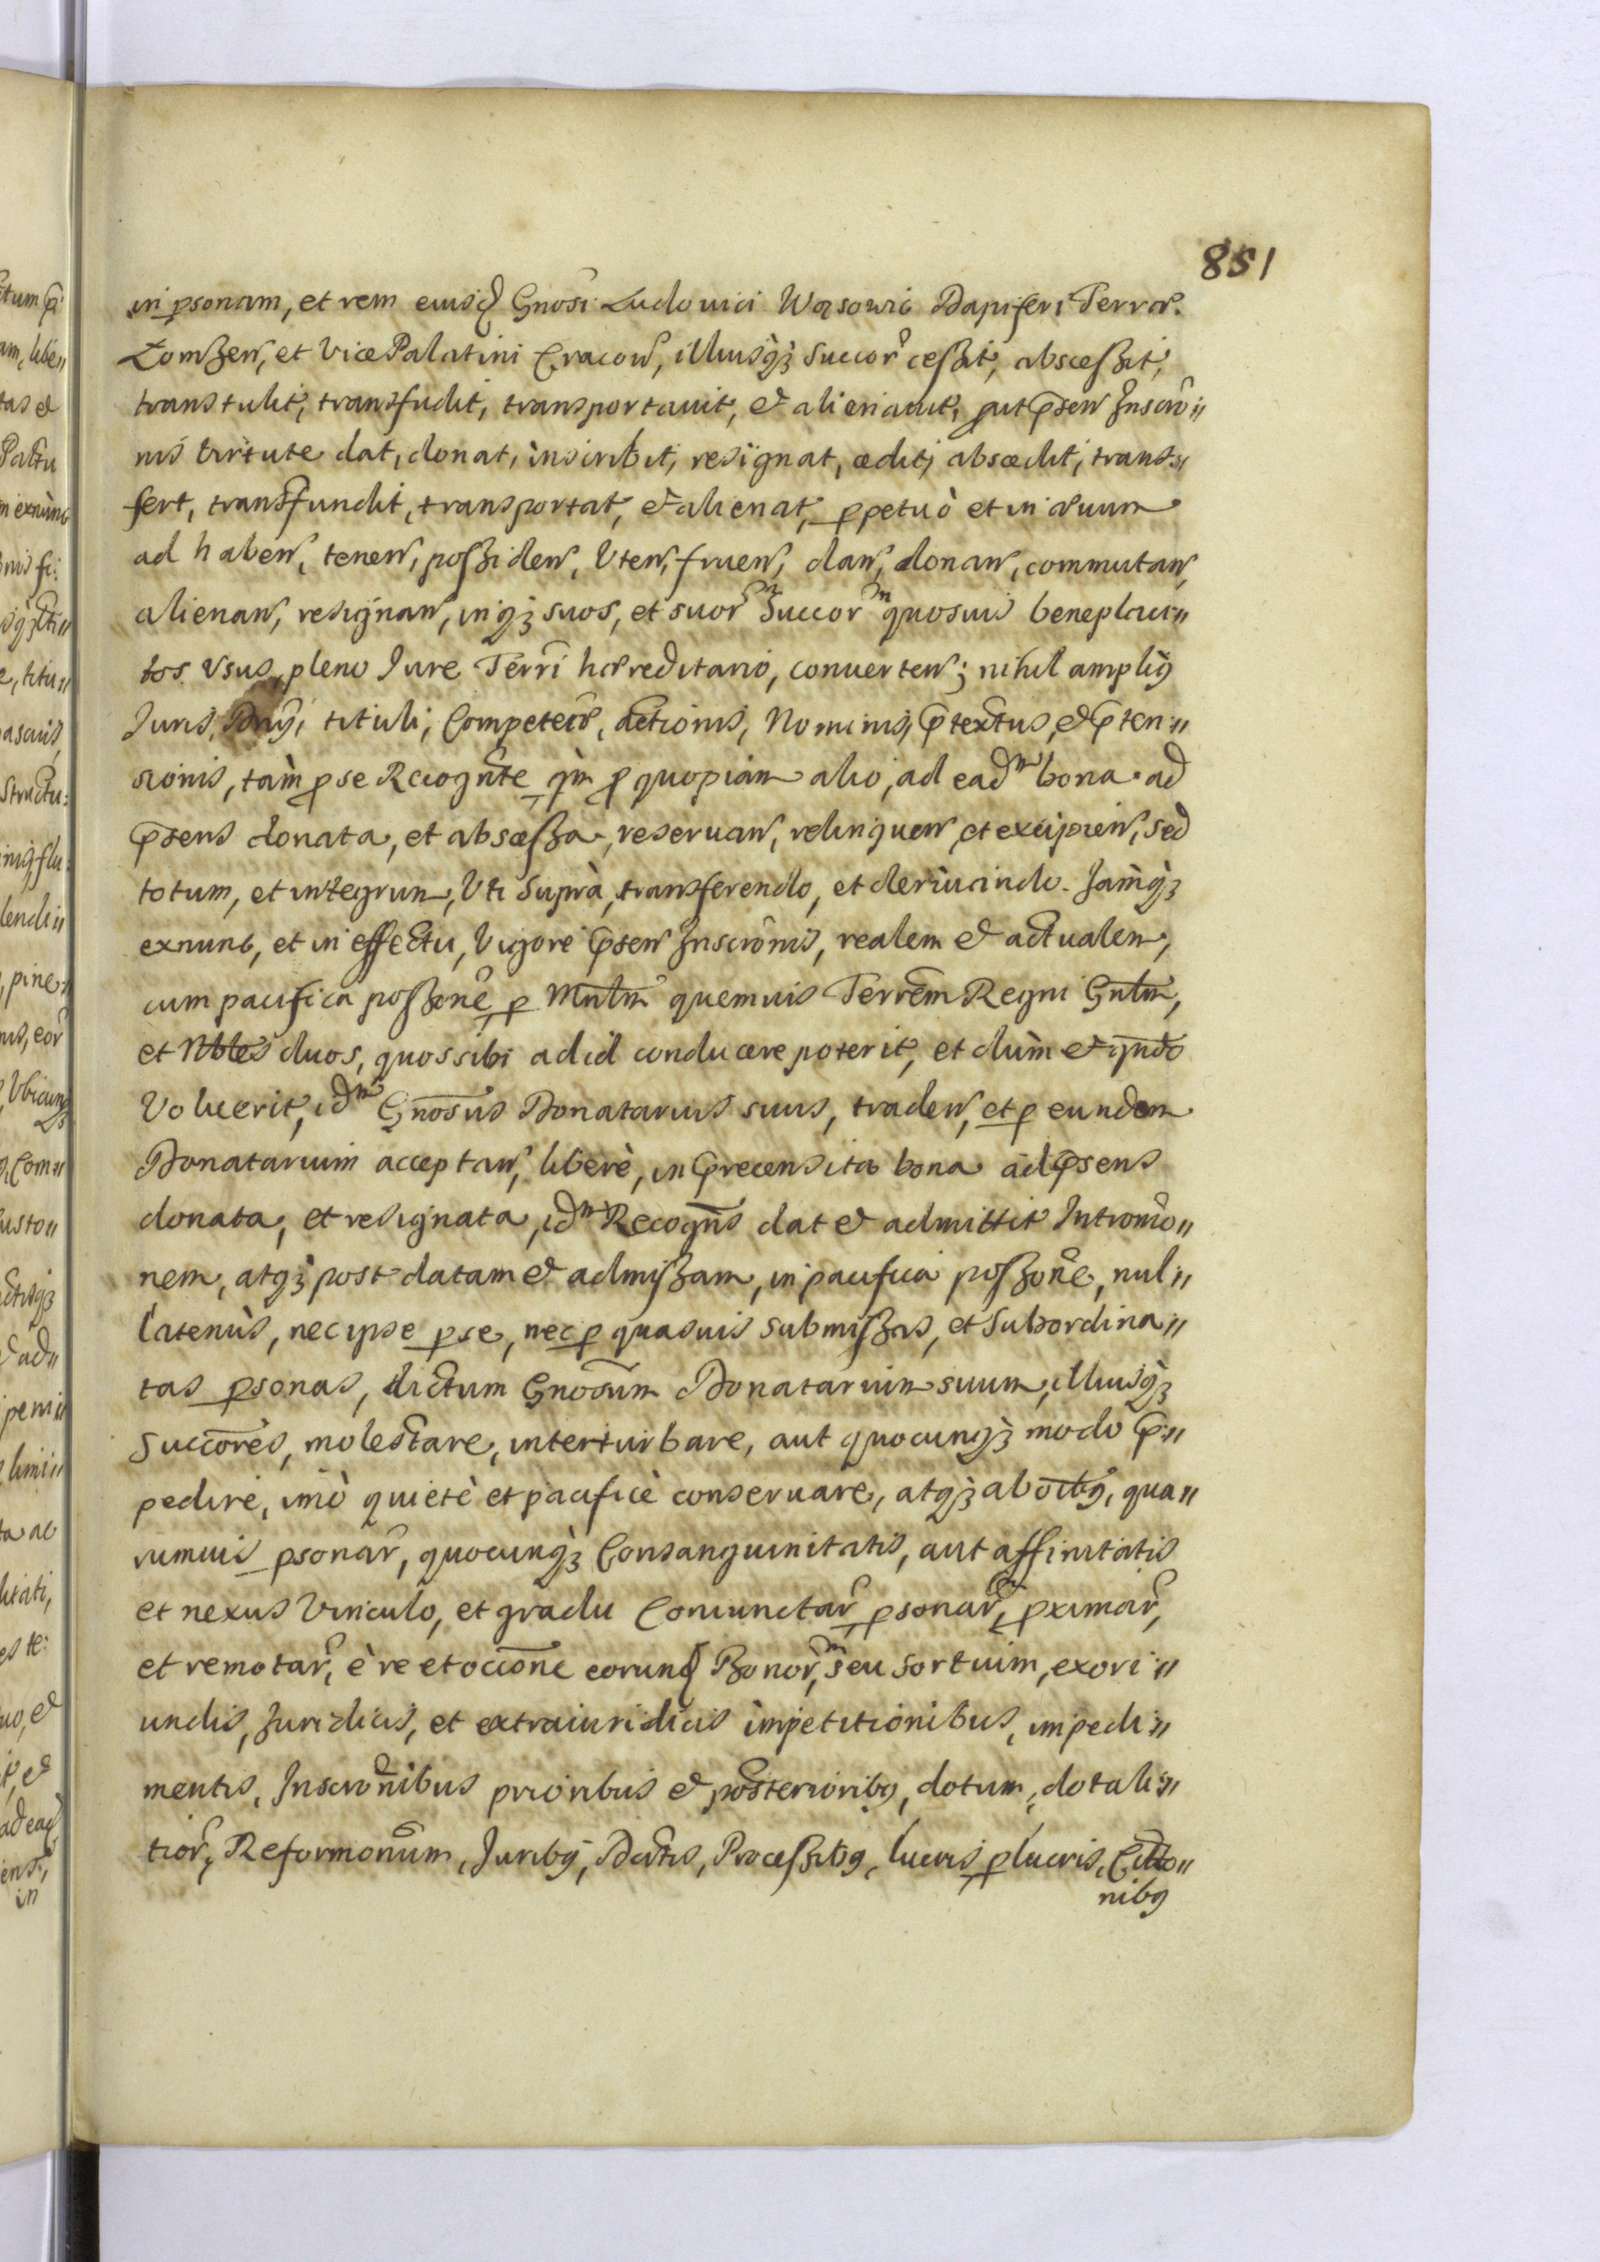 851
in psonam, et rem eiusd Gnosi Ludouici Wąsowic Dapiferi Terrar.
Łomżen, et Vice Palatini Cracow, illiusq; Succor cessit, abscessit,
transtulit, transfudit, transportauit, et alienauit, put psen Inscro„
nis virtute dat, donat, inscribit, resignat, cedit, abscedit, trans„
fert, transfundit, transportat, et alienat, ppetuò et in æuum
ad haben, tenen, possiden, Vten, fruen, dan, donan, commutan,
alienan, resignan, inq; suos, et suor Succor quosuis beneplaci„
tos Vsus, pleno Iure Terri hæreditario, conuerten; nihil ampliy
Iuris, Dnij, tituli, Competen, Actionis, Nominis, ptextus, et pten„
sionis, tàm p se Recognte, qm p quopiam alio, ad ead bona ad
psens donata, et abscessa, reseruan, relinquen, et excipien, Sed
totum, et integrum, Vti Suprà, transferendo, et deriuando. Iamq;
exnunc, et in effectu, Vigore psen Inscronis, realem et actualem,
cum pacifica possone, p Mnlm quemuis Terrem Regni Gnlm,
et Nbles duos, quos sibi ad id conducere poterit, et dum et qndo
Voluerit, idm Gnosus Donatarius suus, traden, et p eundem
Donatarium acceptan, liberè, in precensita bona ad psens
donata, et resignata, idm Recogns dat et admittit Intromo„
nem, atq; post datam et admissam, in pacifica possone, nul„
latenùs, nec ipse p se, nec p quasuis submissas, et Subordina„
tas psonas, dictum Gnosum Donatarium suum, illiusq;
Succores, molestare, interturbare, aut quocunq; modo p„
pedire, imò quietè et pacificè conseruare, atq; ab oibg, qua„
rumuis psonar, quocunq; Consanguinitatis, aut affinitatis
et nexus Vinculo, et gradu Coniunctar, psonar, pximar,
et remotar, è re et occione eorund Bonor, seu Sortium, exori„
undis, Iuridicis, et extraiuridicis impetitionibus, impedi„
mentis, Inscronibus prioribus et posterioribg, dotum, dotali„
tior, Reformonum, Iuribg, Actis, Processibg, lucris plucris, Citto„
nibg